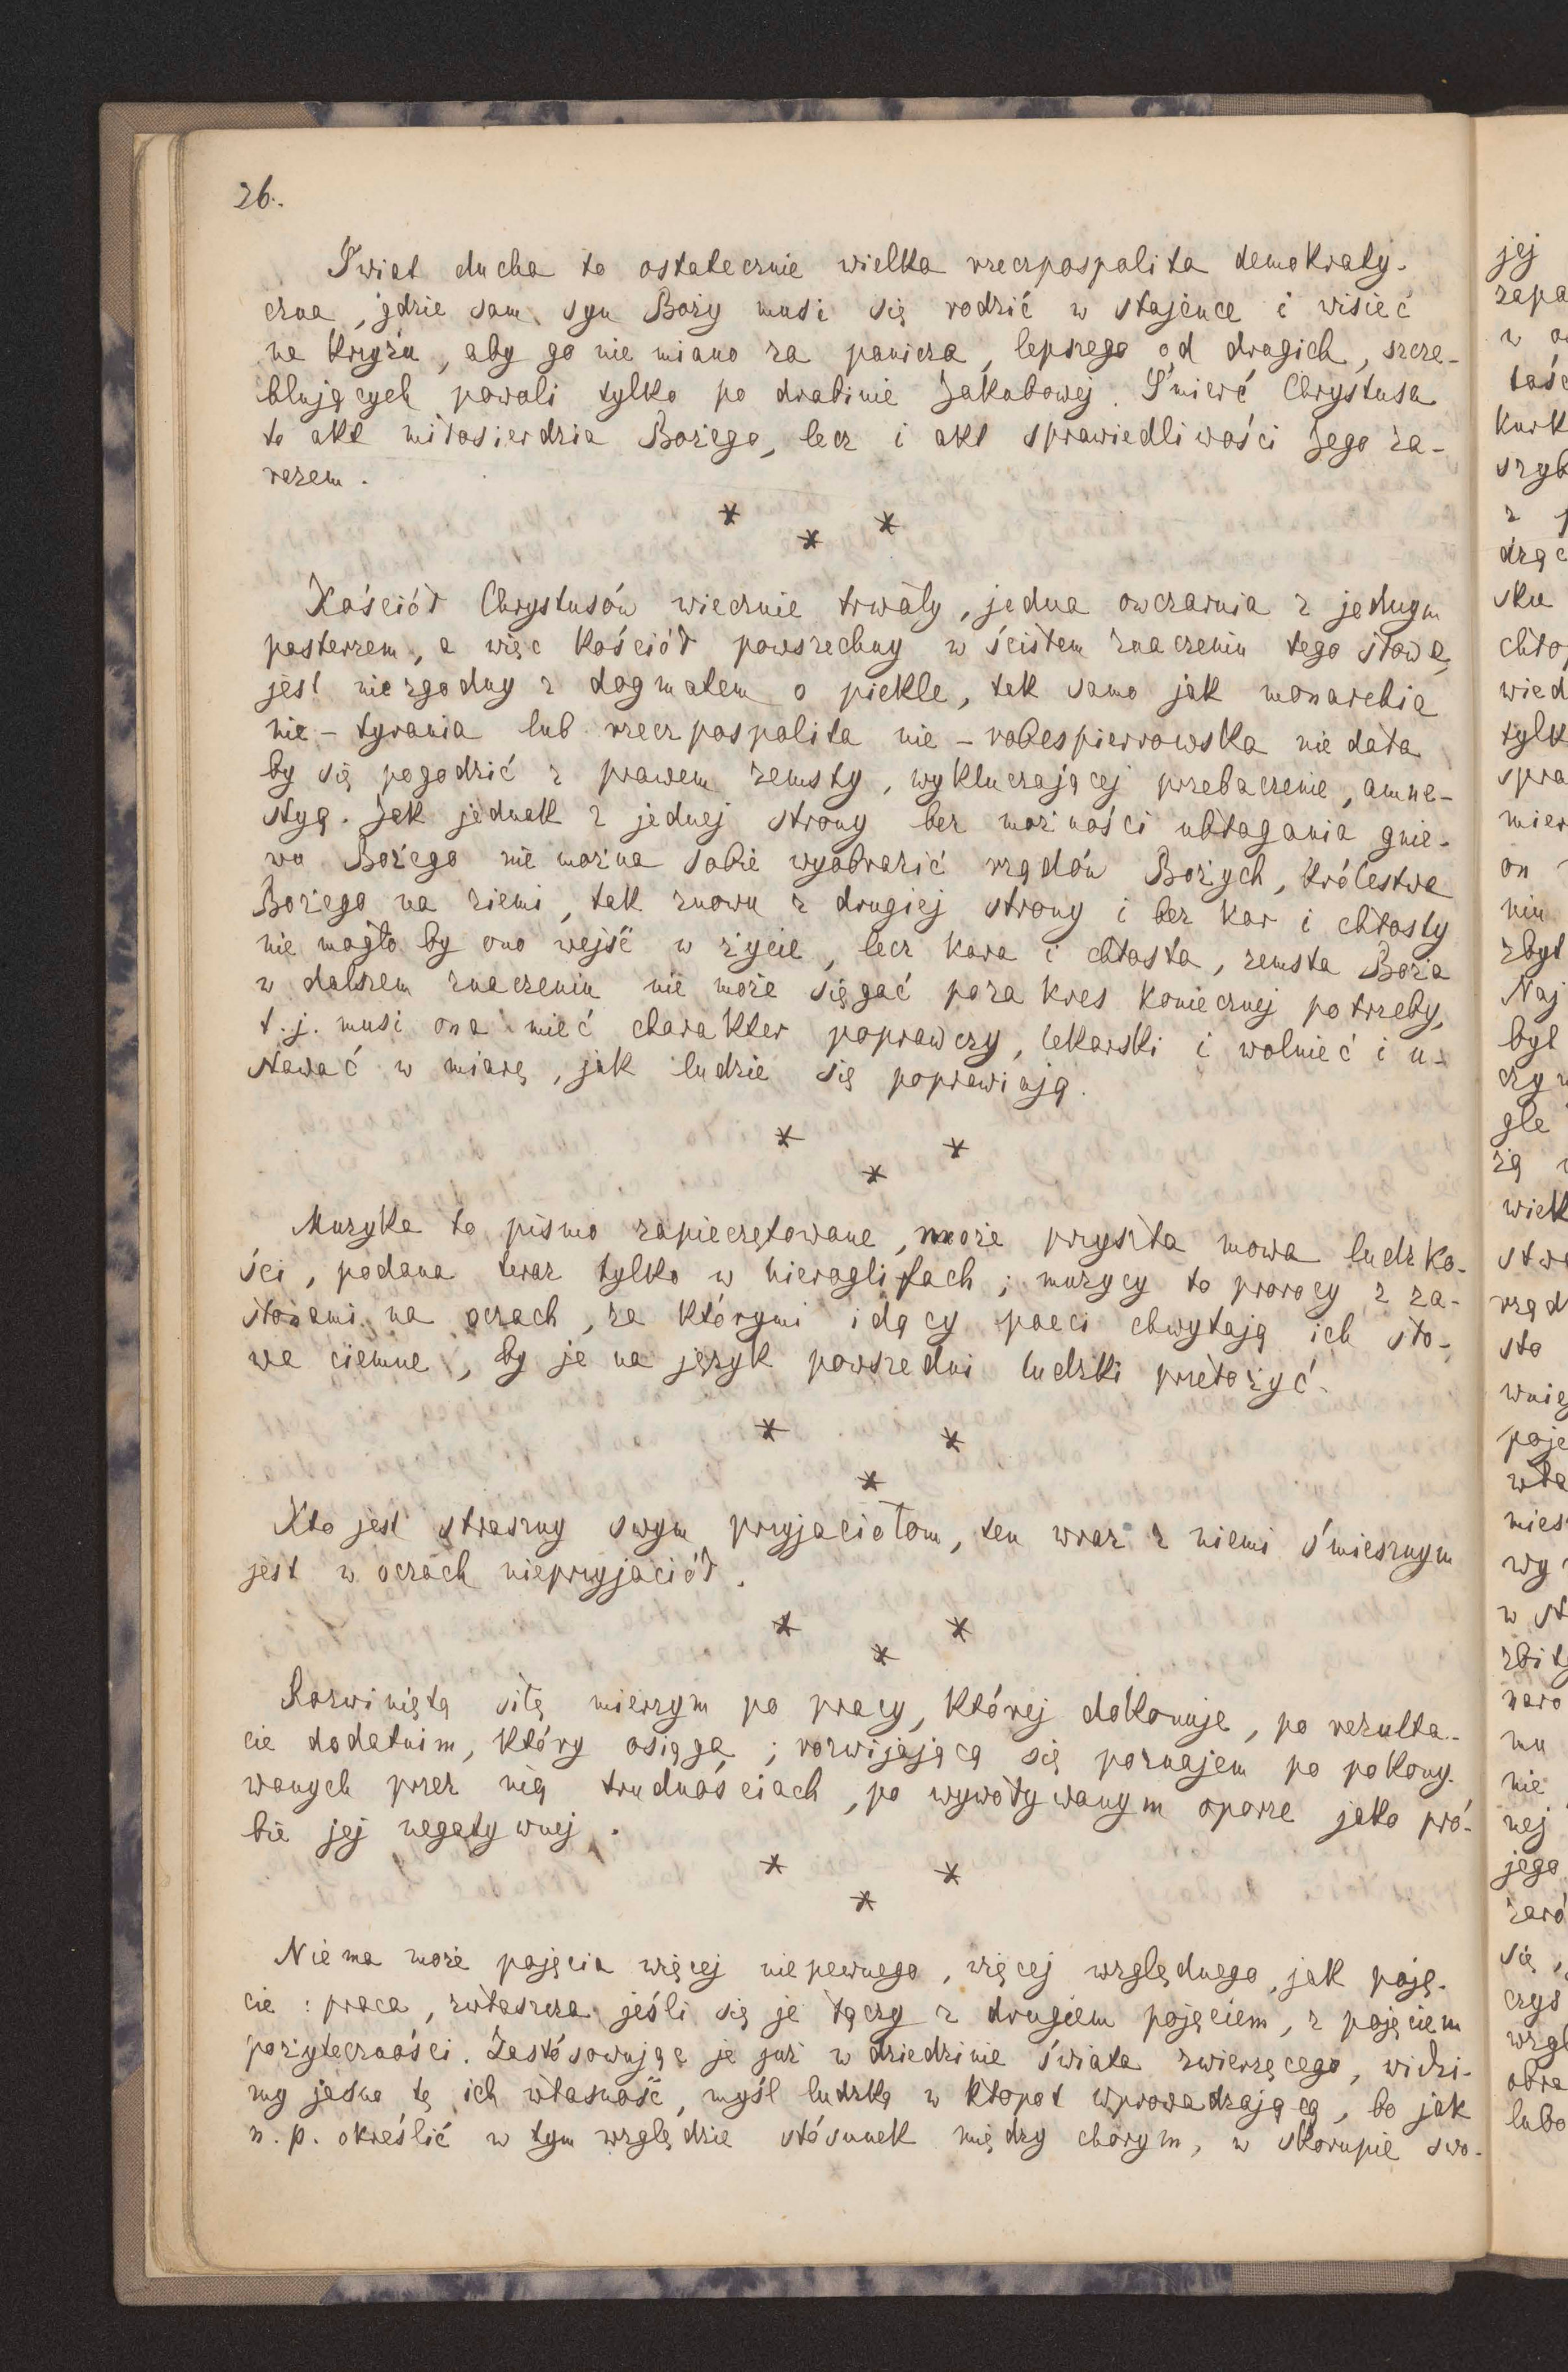 26.
Świat ducha to ostatecznie wielka rzeczpospolita demokraty-
czna, gdzie sam syn Boży musi się rodzić w stajence i wisieć
na krzyżu, aby go nie miano za panicza, lepszego od drugich, szcze-
blujących powoli tylko po drabinie Jakubowej. Śmierć Chrystusa
to akt miłosierdzia Bożego, lecz i akt sprawiedliwości Jego za-
razem.
* * *
Kościół Chrystusów wiecznie trwały, jedna owczarnia z jednym
pasterzem, a więc kościół powszechny w ścisłem znaczeniu tego słowa,
jest niezgodny z dogmatem o piekle, tak samo jak monarchia
nie-tyrania lub rzeczpospolita nie-robespierrowska nie dała
by się pogodzić z prawem zemsty, wykluczającej przebaczenie, amne-
styą. Jak jednak z jednej strony bez możności ubłagania gnie-
wu Bożego nie można sobie wyobrazić rządów Bożych, królestwa
Bożego na ziemi, tak znowu z drugiej strony i bez kar i chłosty
nie mogło by ono wejść w życie, lecz kara i chłosta, zemsta Boża
w dalszem znaczeniu nie może sięgać poza kres koniecznej potrzeby,
t.j. musi ona mieć charakter poprawczy, lekarski i wolnieć i u-
stawać w miarę, jak ludzie się poprawiają.
* * *
Muzyka to pismo zapieczętowane, może przyszła mowa ludzko-
ści, podana teraz tylko w hieroglifach; muzycy to prorocy z za-
słonami na oczach, za którymi idący poeci chwytają ich sło-
wa ciemne, by je na język powszedni ludzki przełożyć.
* * *
Kto jest straszny swym przyjaciołom, ten wraz z niemi śmiesznym
jest w oczach nieprzyjaciół.
* * *
Rozwiniętą siłę mierzym po pracy, której dokonuje, po rezulta-
cie dodatnim, który osiąga; rozwijającą się poznajem po pokony-
wanych przez nią trudnościach, po wywoływanym oporze jako pró-
bie jej negatywnej.
* * *
Niema może pojęcia więcej niepewnego, więcej względnego, jak poję-
cie: praca, zwłaszcza jeśli się je łączy z drugiem pojęciem, z pojęciem
pożyteczności. Zastósowując je już w dziedzinie świata zwierzęcego, widzi-
my jasno tę ich własność, myśl ludzką w kłopot wprowadzającą, bo jak
n.p. określić w tym względzie stósunek między chorym, w skorupie swo-
jej
zapa